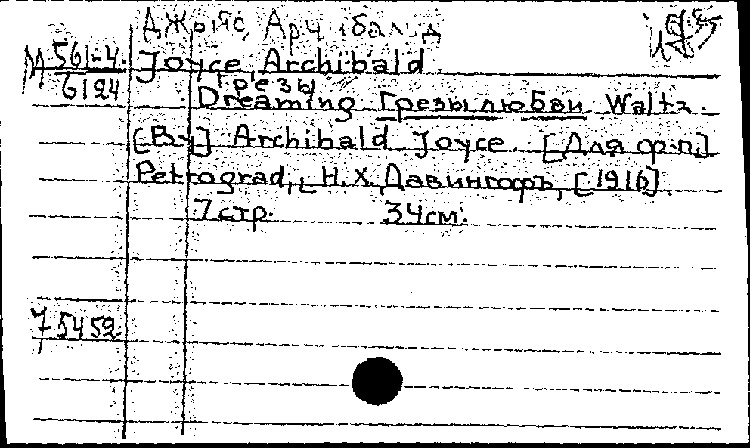 Джойс, Арчибалд
М 561-4 Joyce Archibald
6124
Грезы
Dreaming Грезы любви. Waltz.
[By] Archibald Joyce. [Для ф-п.]
Petrograd, Н. Х. Давингофъ, [1916].
7 стр. 34 см.
75452